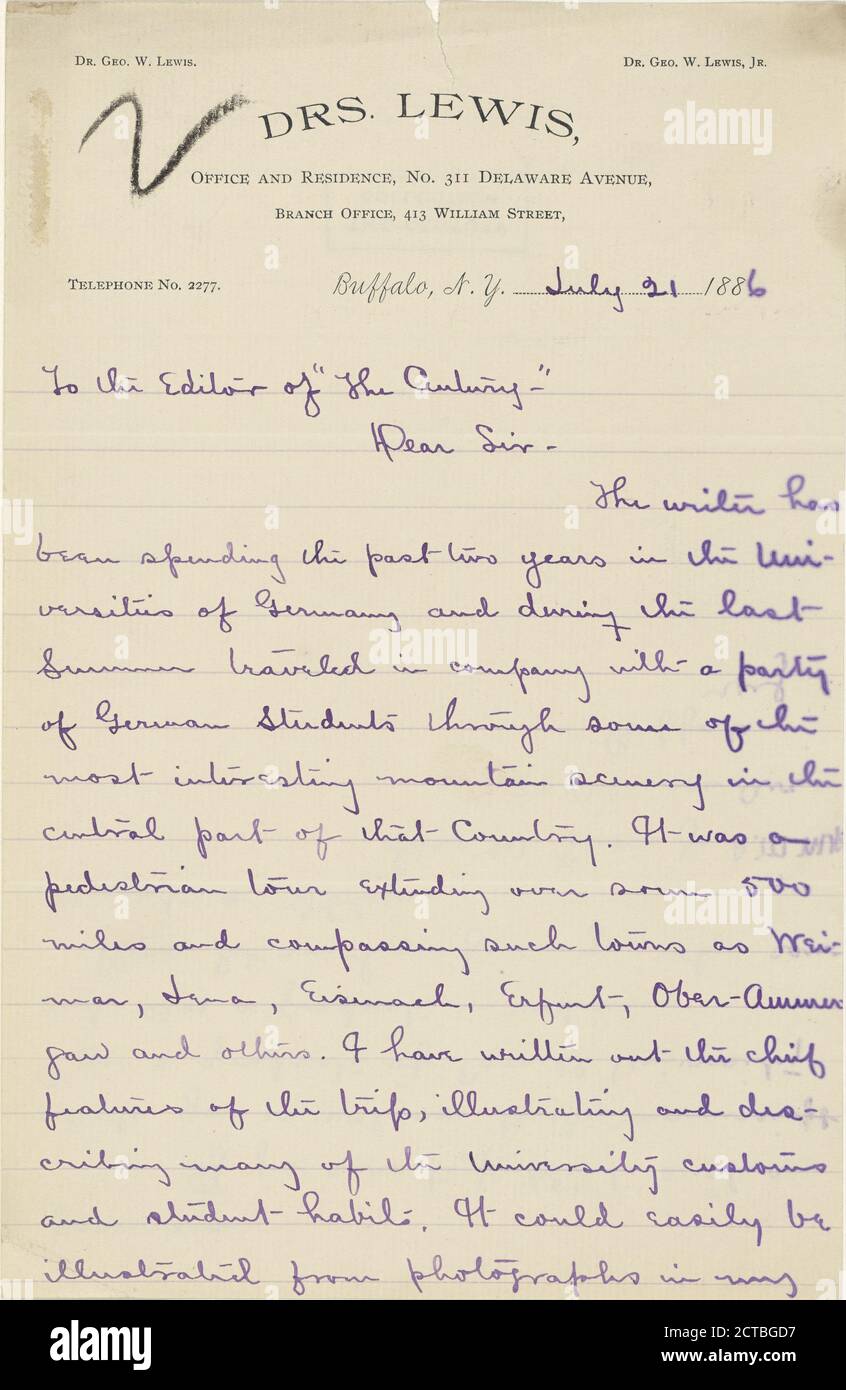 Dr. Geo. W. Lewis.
Dr. Geo. W. Lewis, Jr.
DRS. LEWIS,
Office and Residence, No. 311 Delaware Avenue,
Branch Office, 413 William Street,
Telephone No. 2277.
Buffalo, N. Y. July 21 1886
To the Editor of "The Century-"
Dear Sir -
The writer has
been spending the past two years in the Uni-
versities of Germany and during the last
Summer traveled in company with a party
of German Students through some of the
most interesting mountain scenery in the
central part of that Country. It was a
pedestrian tour extending over some 500
miles and compassing such towns as Wei-
mar, Jena, Eisenach, Erfurt, Ober-Ammer
gau and others. I have written out the chief
features of the trip, illustrating and des-
cribing many of the University customs
and student habits. It could easily be
illustrated from photographs in my
alamy
Image ID: 2CTBGD7
www.alamy.com